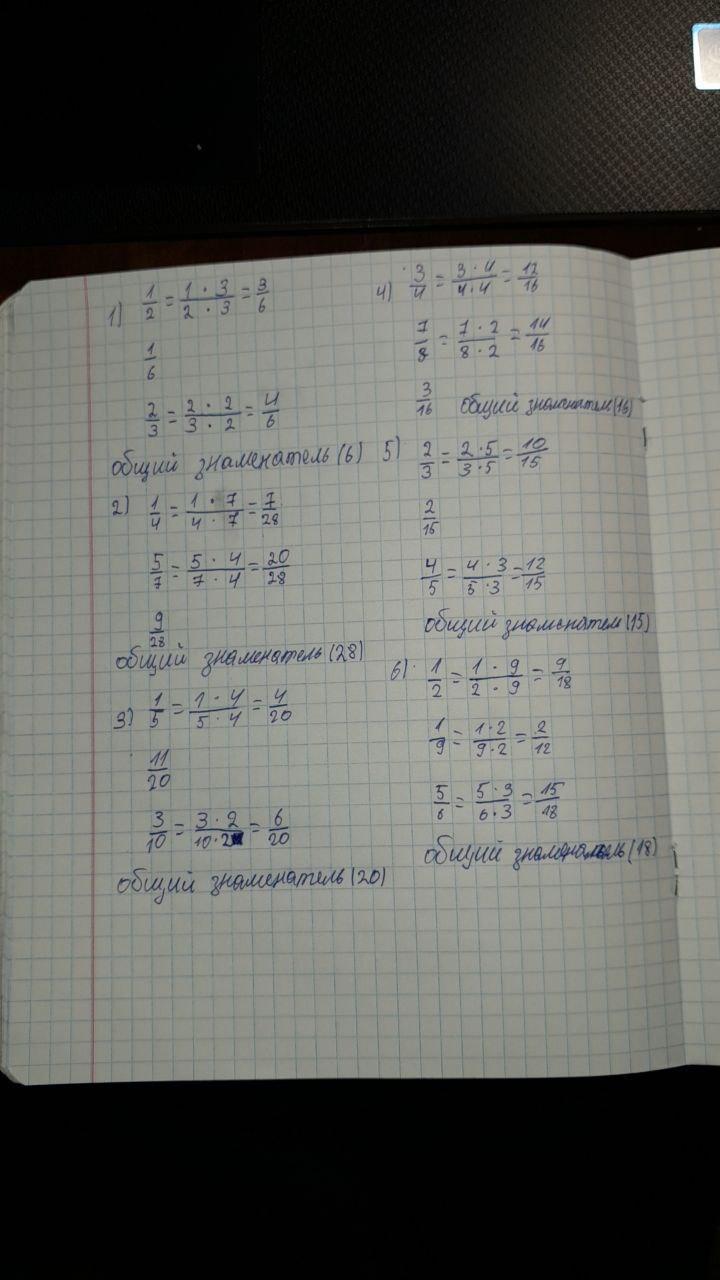 1) 1/2 = 1 · 3/2 · 3 = 3/6
1/6
2/3 = 2 · 2/3 · 2 = 4/6
общий знаменатель (6)
2) 1/4 = 1 · 7/4 · 7 = 7/28
5/7 = 5 · 4/7 · 4 = 20/28
9/28
общий знаменатель (28)
3) 1/5 = 1 · 4/5 · 4 = 4/20
11/20
3/10 = 3 · 2/10 · 2 = 6/20
общий знаменатель (20)
4) 3/4 = 3 · 4/4 · 4 = 12/16
7/8 = 7 · 2/8 · 2 = 14/16
3/16 общий знаменатель (16)
5) 2/3 = 2 · 5/3 · 5 = 10/15
2/15
4/5 = 4 · 3/5 · 3 = 12/15
общий знаменатель (15)
6) 1/2 = 1 · 9/2 · 9 = 9/18
1/9 = 1 · 2/9 · 2 = 2/12
5/6 = 5 · 3/6 · 3 = 15/18
общий знаменатель (18)